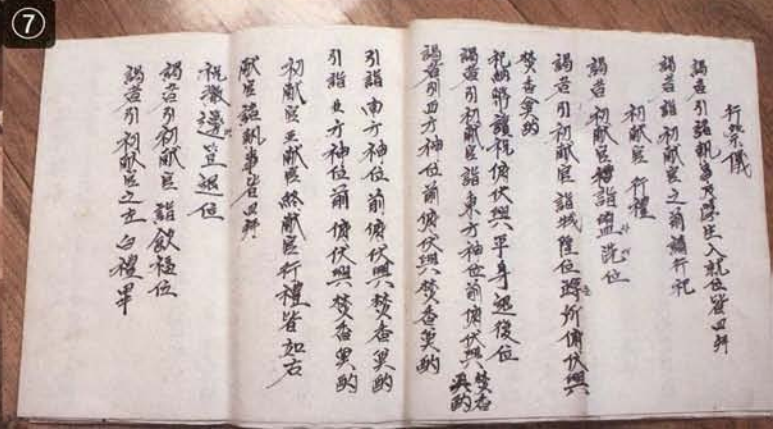 ⑦
行祭儀
謁者引諸執事及學生入就位皆四拜
謁者詣初献官之前請行祀
初献官行禮
謁者初献官禮詣盥洗位
謁者引初献官詣城隍位跪祈俯伏興
焚香奠酌
祝納幣讀祝俯伏興平身退復位
謁者引初献官詣東方神位前俯伏興焚香奠酌
謁者引西方神位前俯伏興焚香奠酌
引詣南方神位前俯伏興焚香奠酌
引詣北方神位前俯伏興焚香奠酌
初献官亞献官終献官行禮皆如右
献官諸執事皆四拜
祝撤籩豆退位
謁者引初献官詣飲福位
謁者引初献官之左白禮畢